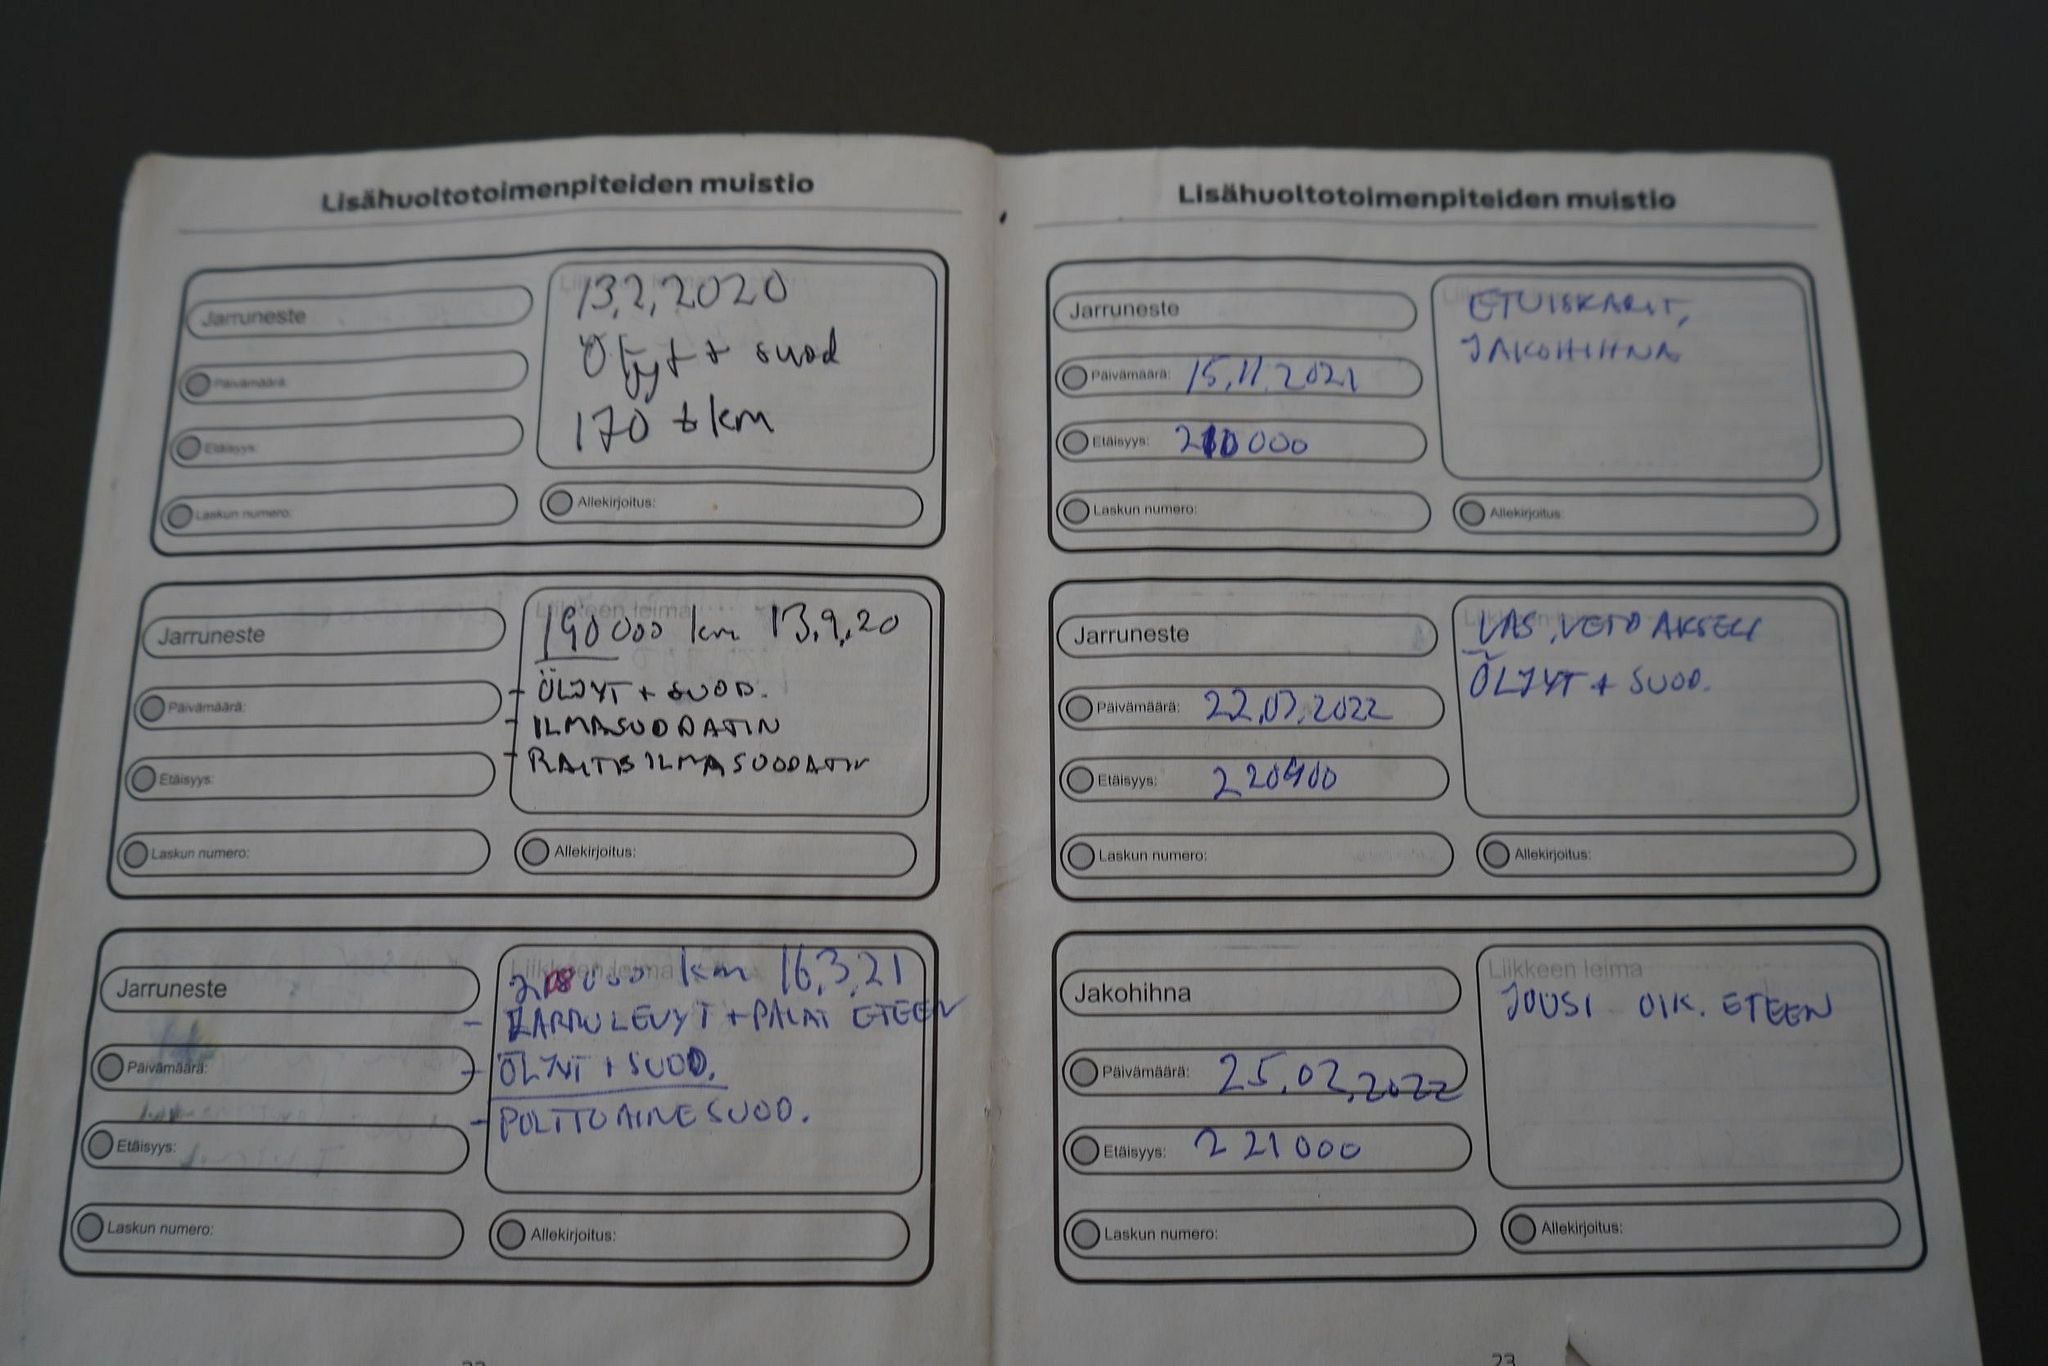 Lisähuoltotoimenpiteiden muistio
Jarruneste
Päivämäärä:
Etäisyys:
Laskun numero:
13.2.2020
Öljyt + suod
170 tkm
Allekirjoitus:
Jarruneste
Päivämäärä:
Etäisyys:
Laskun numero:
Liikkeen leima
190000 km 13.9.20
- ÖLJYT + SUOD.
- ILMASUODATIN
- RAITISILMASUODATIN
Allekirjoitus:
Jarruneste
Päivämäärä:
Etäisyys:
Laskun numero:
Liikkeen leima
km 16.3.21
- JARRULEVYT + PALAT ETEEN
- ÖLJYT + SUOD.
- POLTTOAINESUOD.
Allekirjoitus:
Lisähuoltotoimenpiteiden muistio
Jarruneste
Päivämäärä: 15.11.2021
Etäisyys: 210000
Laskun numero:
ETUISKARIT,
JAKOHIHNA
Allekirjoitus:
Jarruneste
Päivämäärä: 22.02.2022
Etäisyys: 220900
Laskun numero:
VAS. VETO AKSELI
ÖLJYT + SUOD.
Allekirjoitus:
Jakohihna
Päivämäärä: 25.02.2022
Etäisyys: 221000
Laskun numero:
Liikkeen leima
JOUSI OIK. ETEEN
Allekirjoitus:
23